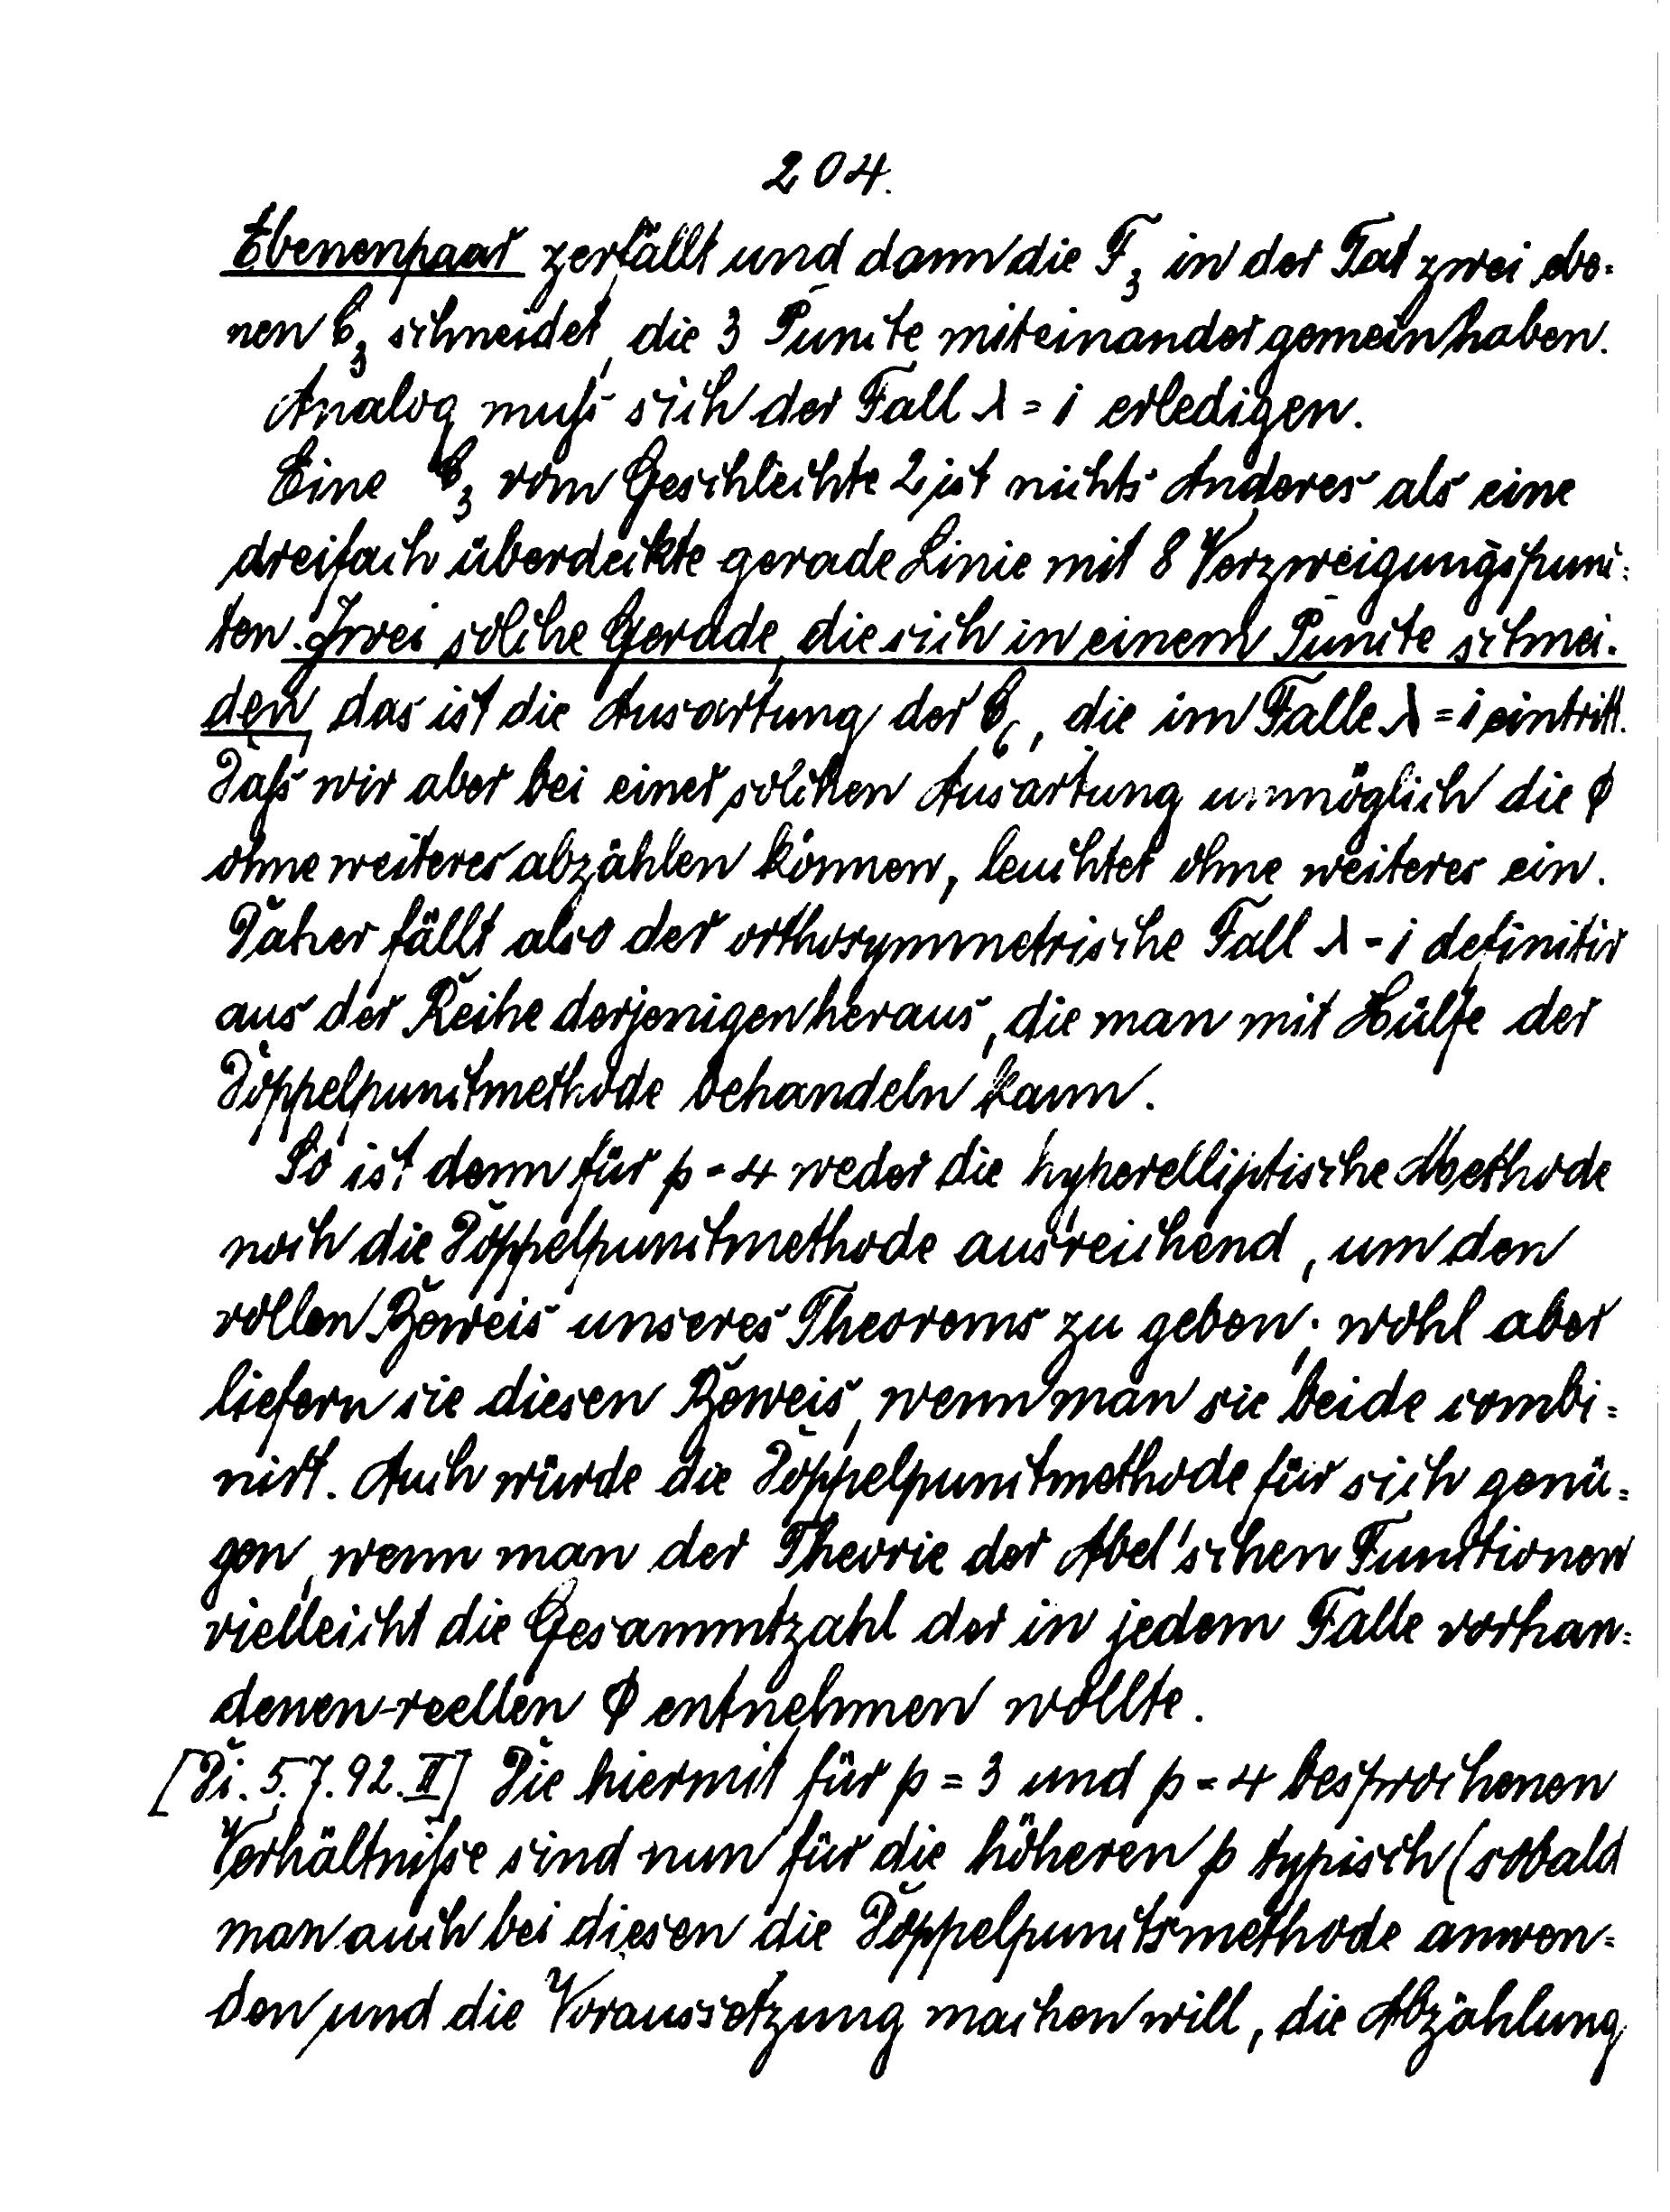 204.
Ebenenpaar zerfällt und dann die F₃ in der Tat zwei ebe=
nen C₃ schneidet, die 3 Puncte miteinander gemein haben.
Analog muß sich der Fall λ = 1 erledigen.
Eine C₃ vom Geschlechte 2 ist nichts Anderes als eine
dreifach überdeckte gerade Linie mit 8 Verzweigungspunc=
ten. Zwei solche Gerade, die sich in einem Puncte schnei=
den, das ist die Ausartung der C₆, die im Falle λ = 1 eintritt.
Daß wir aber bei einer solchen Ausartung unmöglich die ϕ
ohne weiteres abzählen können, leuchtet ohne weiteres ein.
Daher fällt also der orthosymmetrische Fall λ = 1 definitiv
aus der Reihe derjenigen heraus, die man mit Hülfe der
Doppelpunctmethode behandeln kann.
So ist denn für p = 4 weder die hyperelliptische Methode
noch die Doppelpunctmethode ausreichend, um den
vollen Beweis unseres Theorems zu geben; wohl aber
liefern sie diesen Beweis, wenn man sie beide combi=
nirt. Auch würde die Doppelpunctmethode für sich genü=
gen, wenn man der Theorie der Abel'schen Functionen
vielleicht die Gesammtzahl der in jedem Falle vorhan=
denen reellen ϕ entnehmen wollte.
[Di. 5.7.92. II] Die hiermit für p = 3 und p = 4 besprochenen
Verhältniße sind nun für die höheren p typisch (sobald
man auch bei diesen die Doppelpunctsmethode anwen=
den und die Voraussetzung machen will, die Abzählung